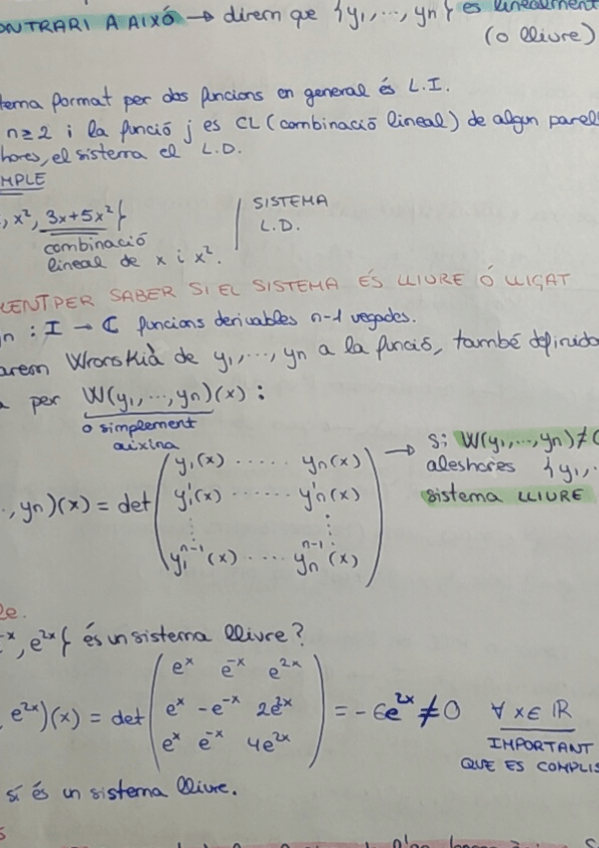 CONTRARI A AIXÓ → direm que {y₁,..., yn} és linealment
(o lliure)
tema format per dos funcions en general és L.I.
n≥2 i la funció j es CL (combinació lineal) de algun parell
hores, el sistema el L.D.
MPLE
, x², 3x+5x²}
combinació
lineal de x i x².
SISTEMA
L.D.
PER SABER SI EL SISTEMA ÉS LLIURE Ó LLIGAT
yn : I → ℂ funcions derivables n-1 vegades.
arem Wronskià de y₁,..., yn a la funció, també definida
per W(y₁,...,yn)(x) :
o simplement
, yn)(x) = det
y₁(x) ..... yn(x)
y₁'(x) ...... yn'(x)
⋮ ⋮
y₁ⁿ⁻¹(x) ..... ynⁿ⁻¹(x)
→ Si W(y₁,...,yn)≠0
aleshores {y₁,.
sistema LLIURE
le.
⁻ˣ, e²ˣ} és un sistema lliure?
e²ˣ)(x) = det
eˣ e⁻ˣ e²ˣ
eˣ -e⁻ˣ 2e²ˣ
eˣ e⁻ˣ 4e²ˣ
= -6e²ˣ ≠ 0 ∀ x ∈ ℝ
IMPORTANT
QUE ES COMPLIS
sí és un sistema lliure.